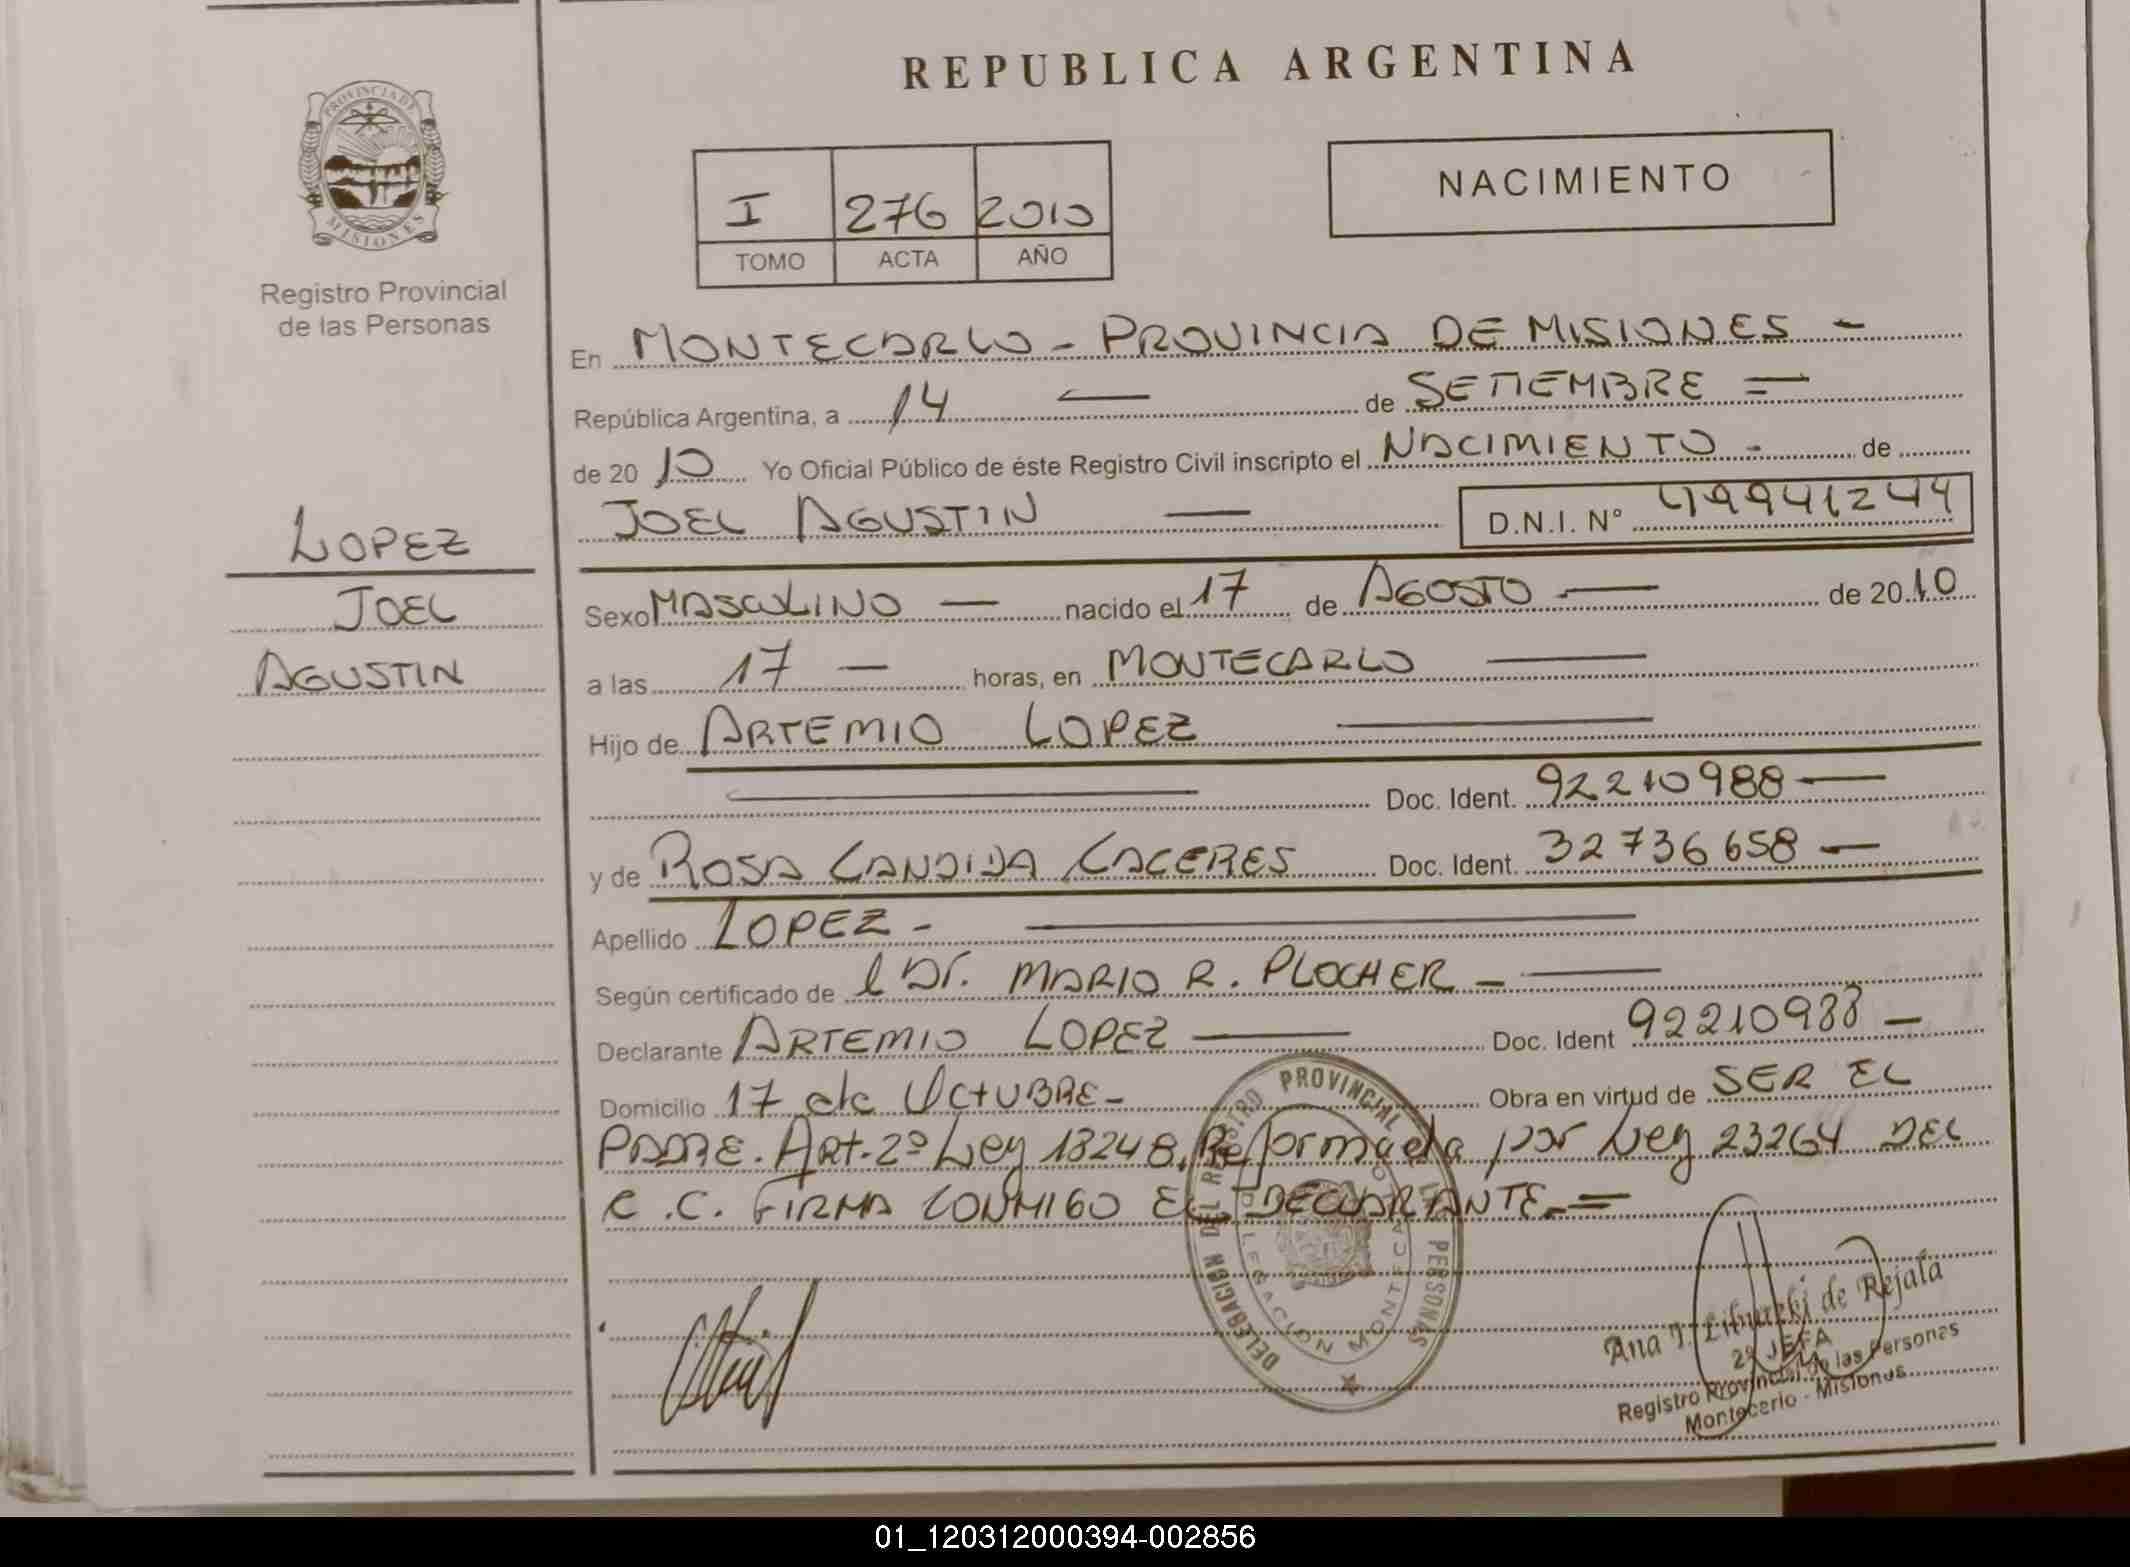 REPUBLICA ARGENTINA
PROVINCIA DE
MISIONES
Registro Provincial
de las Personas
I 276 2010
TOMO ACTA AÑO
NACIMIENTO
En MONTECARLO - PROVINCIA DE MISIONES -
República Argentina, a 14 — de SETIEMBRE =
de 2010 Yo Oficial Público de éste Registro Civil inscripto el NACIMIENTO - de
JOEL AGUSTIN — D.N.I. Nº 49941244
LOPEZ
JOEL
AGUSTIN
Sexo MASCULINO — nacido el 17 de AGOSTO — de 2010
a las 17 — horas, en MONTECARLO —
Hijo de ARTEMIO LOPEZ —
— Doc. Ident. 92210988 —
y de ROSA CANDIDA CACERES Doc. Ident. 32736658 —
Apellido LOPEZ - —
Según certificado de l Dr. MARIO R. PLOCHER - —
Declarante ARTEMIO LOPEZ — Doc. Ident 92210988 -
Domicilio 17 de OCTUBRE - Obra en virtud de SER EL
PADRE. Art. 2º Ley 18248. Reformada por Ley 23264 DEL
C.C. FIRMA CONMIGO EL DECLARANTE. =
DELEGACION DEL REGISTRO PROVINCIAL PERSONAS
DELEGACION MONTECARLO
Ana de Rejala
2º JEFA
Registro Provincial de las Personas
Montecarlo - Misiones
01_120312000394-002856